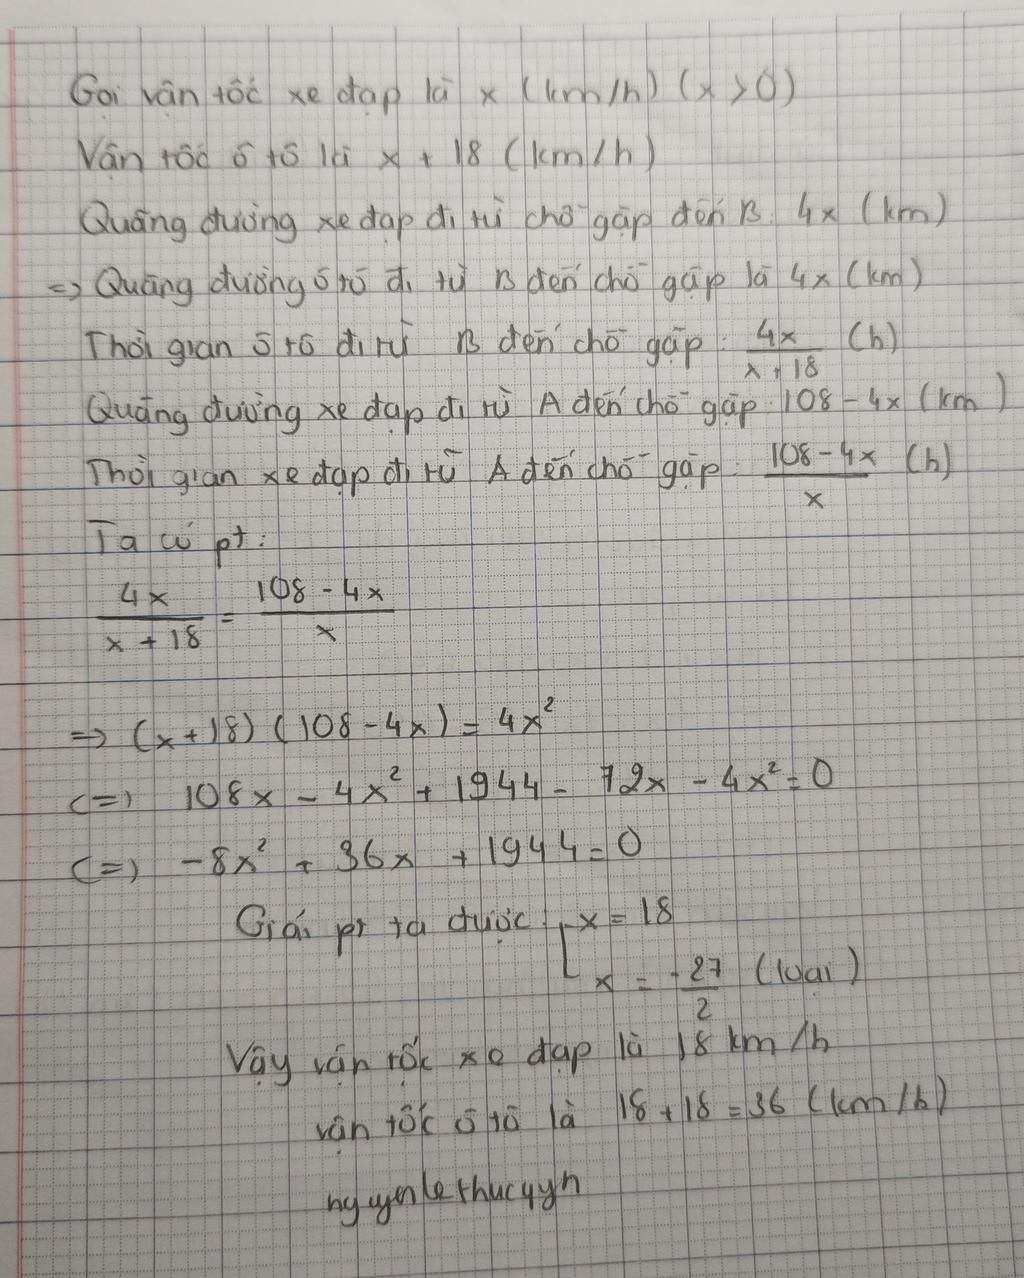 Gọi vận tốc xe đạp là x (km/h) (x > 0)
Vận tốc ô tô là x + 18 (km/h)
Quãng đường xe đạp đi từ chỗ gặp đến B: 4x (km)
=> Quãng đường ô tô đi từ B đến chỗ gặp là 4x (km)
Thời gian ô tô đi từ B đến chỗ gặp: 4x/(x + 18) (h)
Quãng đường xe đạp đi từ A đến chỗ gặp: 108 - 4x (km)
Thời gian xe đạp đi từ A đến chỗ gặp: (108 - 4x)/x (h)
Ta có pt:
4x/(x + 18) = (108 - 4x)/x
=> (x + 18) (108 - 4x) = 4x²
<=> 108x - 4x² + 1944 - 72x - 4x² = 0
<=> -8x² + 36x + 1944 = 0
Giải pt ta được [ x = 18
x = -27/2 (loại)
Vậy vận tốc xe đạp là 18 km/h
vận tốc ô tô là 18 + 18 = 36 (km/h)
nguyenlethucqyn